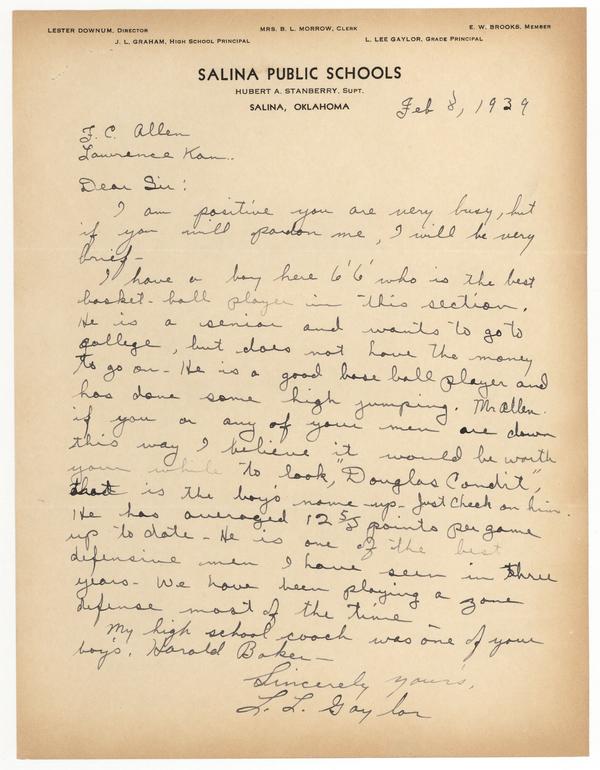 LESTER DOWNUM, DIRECTOR
MRS. B. L. MORROW, CLERK
E. W. BROOKS, MEMBER
J. L. GRAHAM, HIGH SCHOOL PRINCIPAL
L. LEE GAYLOR, GRADE PRINCIPAL
SALINA PUBLIC SCHOOLS
HUBERT A. STANBERRY, SUPT.
SALINA, OKLAHOMA
Feb 8, 1939
F. C. Allen
Lawrence Kan..
Dear Sir:
I am positive you are very busy, but
if you will pardon me, I will be very
brief-
I have a boy here 6'6' who is the best
basket-ball player in this section.
He is a senior and wants to go to
college, but does not have the money
to go on- He is a good base ball player and
has done some high jumping. Mr Allen.
if you or any of your men are down
this way I believe it would be worth
your while to look, "Douglas Condit",
that is the boy's name - up - Just Check on him.
He has averaged 12 points per game
up to date - He is one of the best
defensive men I have seen in three
years- We have been playing a zone
defense most of the time -
My high school coach was one of your
boy's. Harold Baker-
Sincerely yours,
L. L. Gaylor